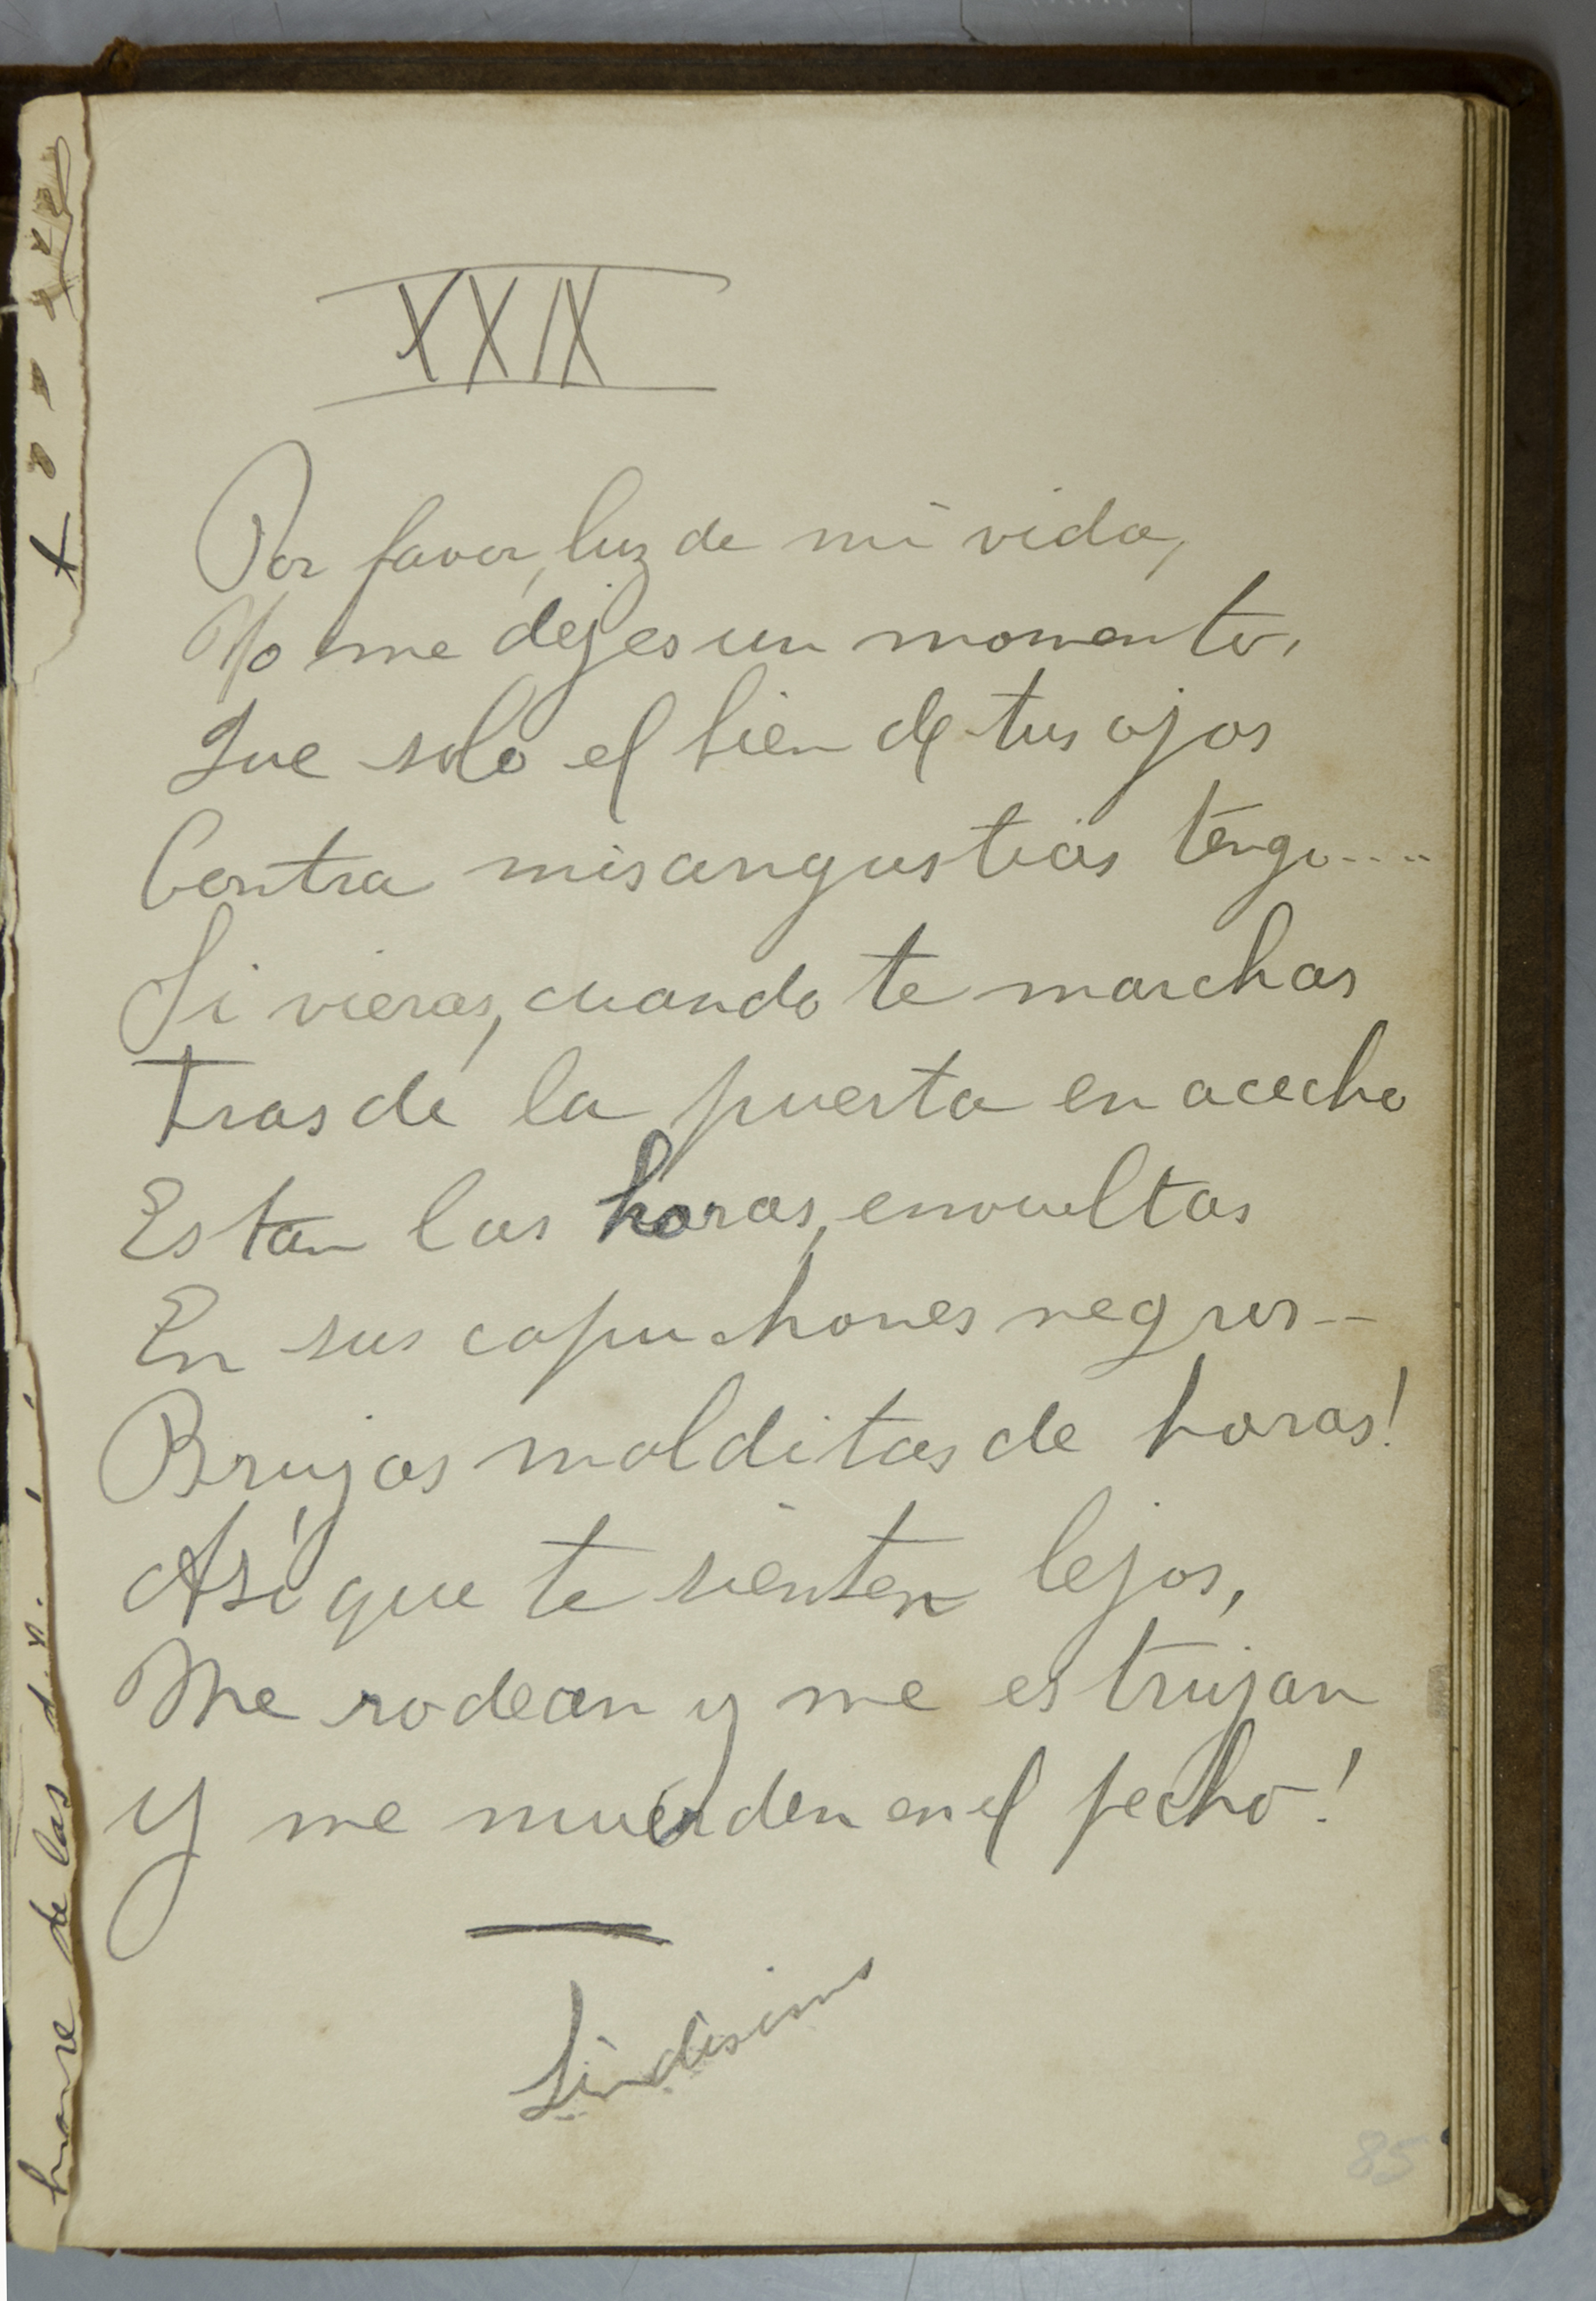 XXIX
Por favor, luz de mi vida,
No me dejes un momento,
Que solo el bien de tus ojos
Contra mis angustias tengo....
Si vieras, cuando te marchas
tras de la puerta en acecho
Estan las horas, envueltas
En sus capuchones negros--
Brujas malditas de horas!
Así que te sienten lejos,
Me rodean y me estrujan
Y me muerden en el pecho!
Lindisimo
85
de las